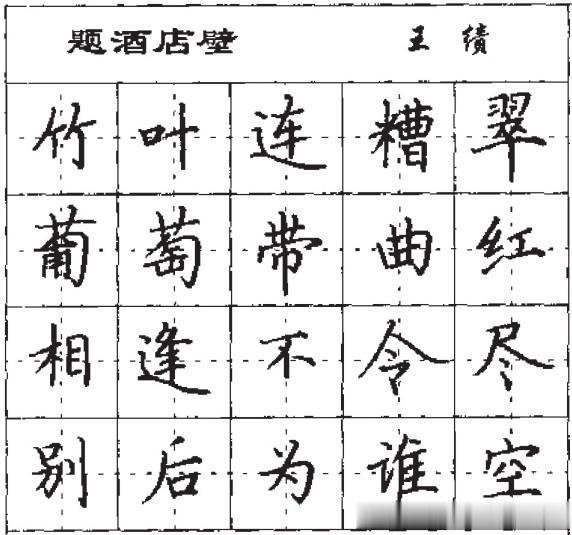 题酒店壁 王绩
竹叶连糟翠
葡萄带曲红
相逢不令尽
别后为谁空